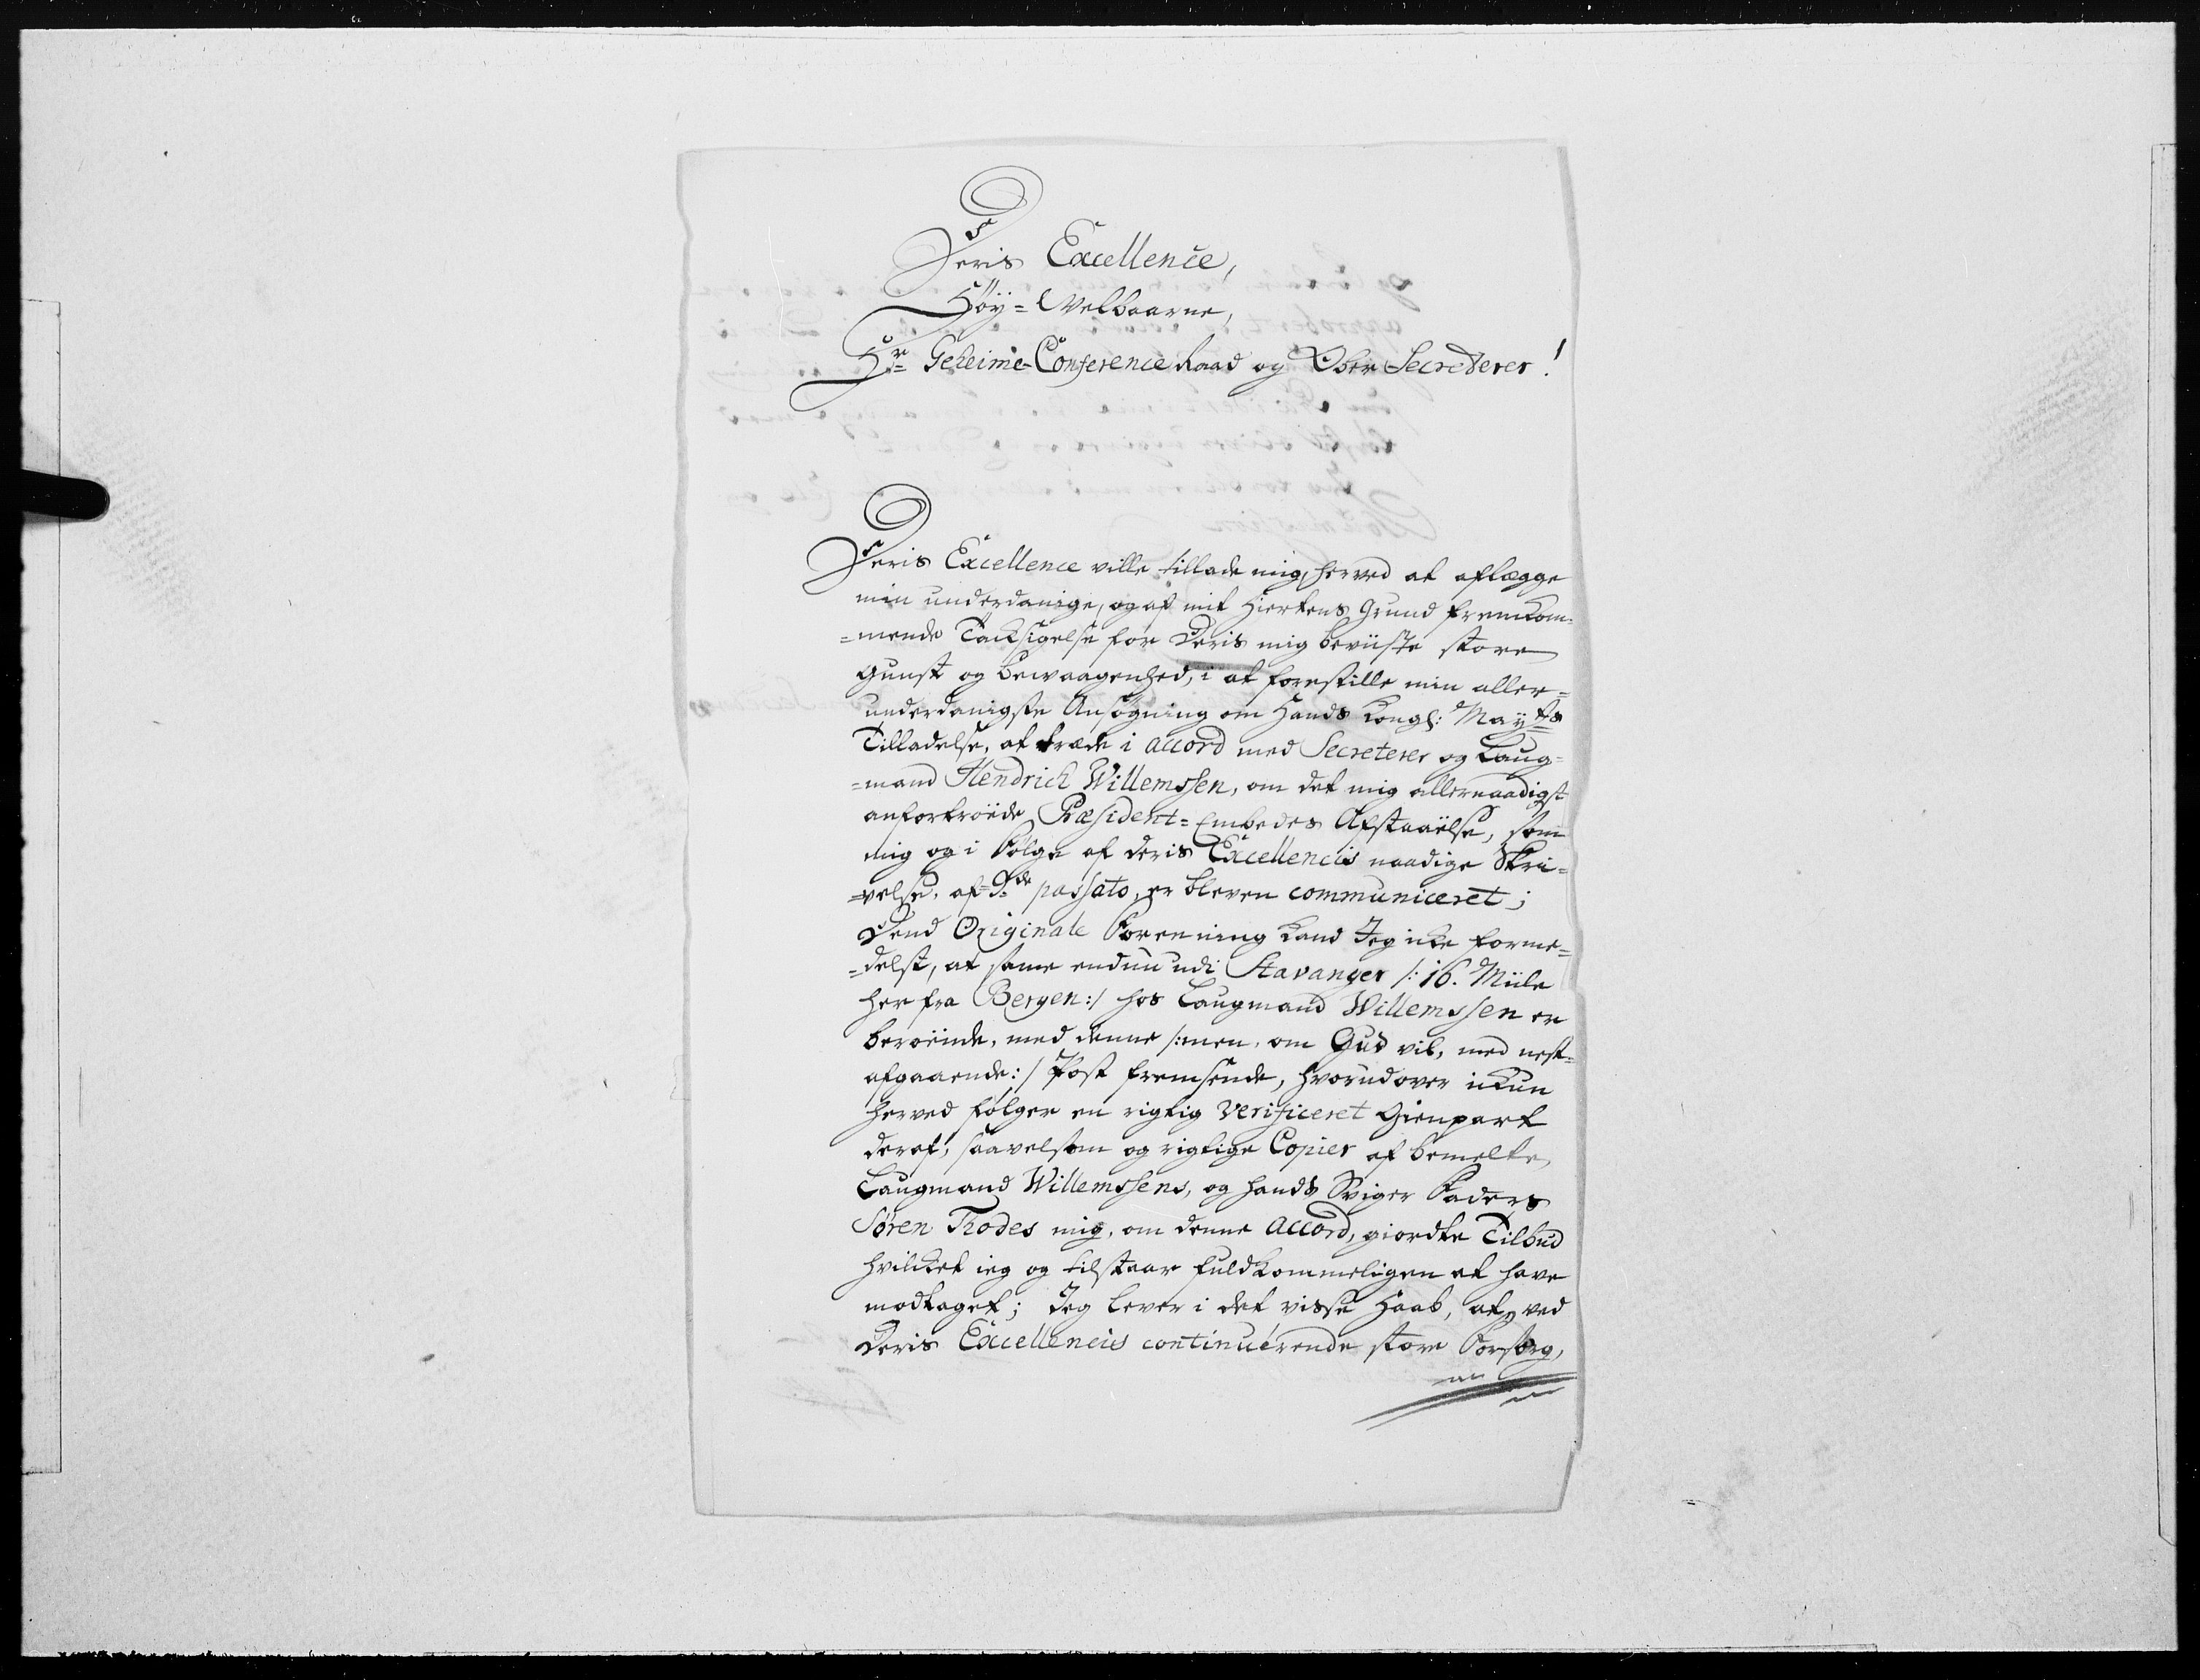 Deris Excellence,
Höÿ=Welbaarne,
Hr Geheime-Conference Raad og Ober Secreterer!
Deris Excellence ville tillade mig, herved at aflægge
min underdanige, og af mit Hiertens Grund fremkom=
=mende Tacksigelse for Deris mig beviiste store
Gunst og bewaagenhed, i at forestille min aller=
underdanigste Ansøgning om Hands Kongl: Mayts
Tilladelse, at træde i accord med Secreterer og Laug=
=mand Hendrich Willemssen, om det mig allernaadigst
anfortroede Præsident=Embedes Afstaaelse, som
mig og i Følge af deris Excellencis naadige Skri=
=velse, af 9de passato, er bleven communiceret;
Dend Originale Forening kand Jeg icke forme=
=delst, at same endnu udi Stavanger /: 16. Miile
her fra Bergen:/ hos Laugmand Willemssen er
beroende, med denne /:men, om Gud vil, med nest=
afgaaende:/ Post fremsende, hvorudover ickun
herved følger en rigtig verificeret Gienpart
deraf, saavelsom og rigtige Copier af bemelte,
Laugmand Willemssens, og hands Sviger Faders
Søren Thodes mig, om denne accord, giordte Tilbud
hvilcket ieg og tilstaar fuldkommeligen at have
modtaget; Jeg lever i det visse Haab, at, ved
Deris Excellencis continuerende store Forsorg,